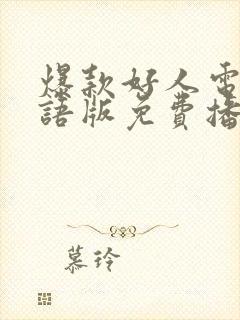 爆款好人電
語版免費播
慕玲